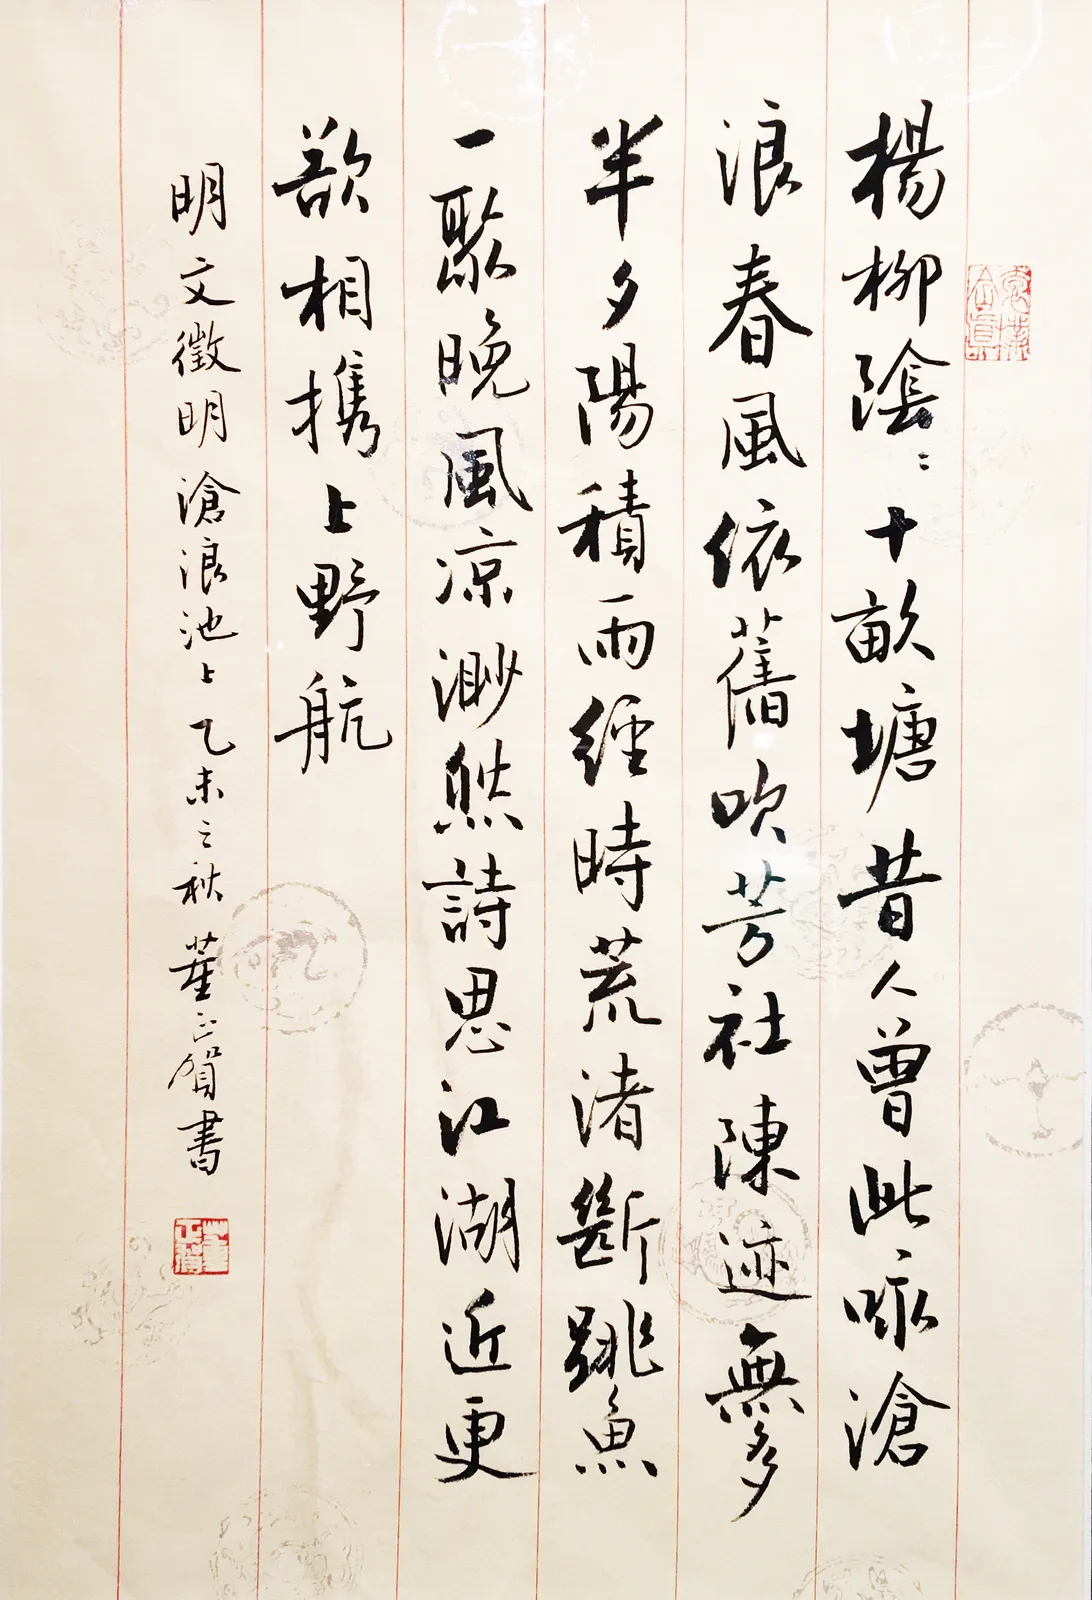 楊柳陰〻十畝塘昔人曾此咏滄
浪春風依舊吹芳社陳迹無多
半夕陽積雨經時荒渚斷跳魚
一聚晚風凉渺然詩思江湖近更
欲相携上野航
明文徵明滄浪池上乙未之秋董正賀書
董正賀